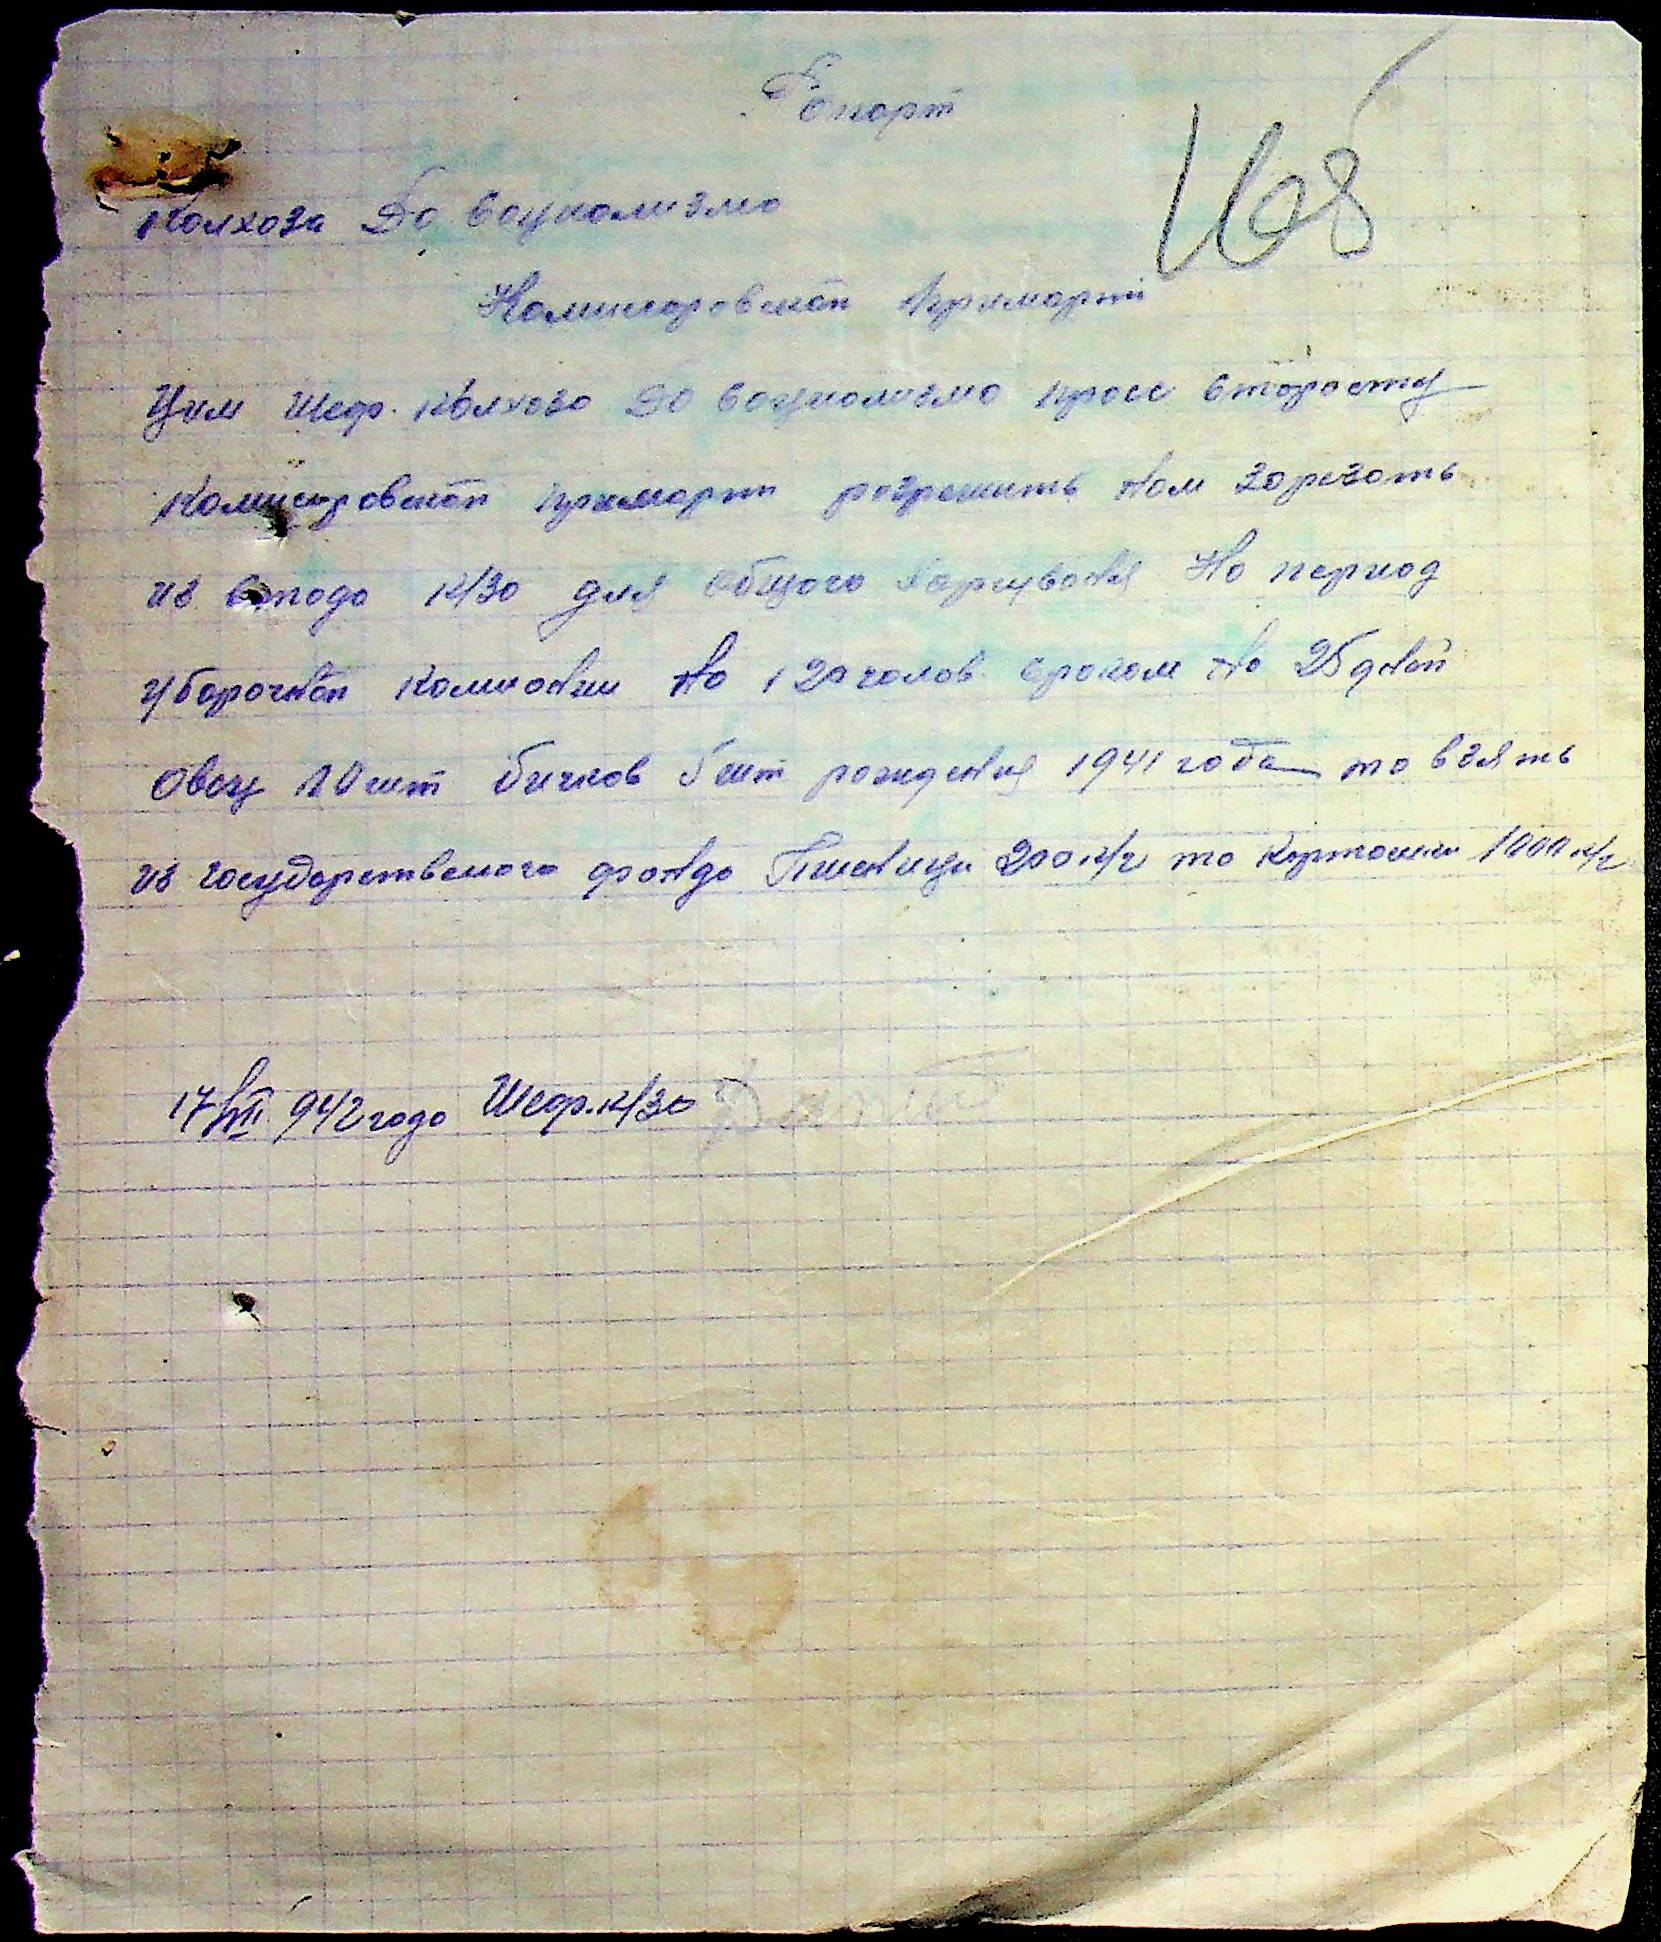 Рапорт
168
Колхоза До социализма
Комисаровской примарии
Цим Шеф. колхоза До социализма просе старосту
Комисаровской примарии розрешить нам зарезать
из стада к/за для общого харчування На период
уборочной компании на 120 голов сроком на 25 дней
Овец 10 шт бичков 5 шт рождения 1941 года та взять
из государственого фонда Пшеници 200 к/г та картошки 1000 к/г
17/VIII 942 года Шеф. к/за